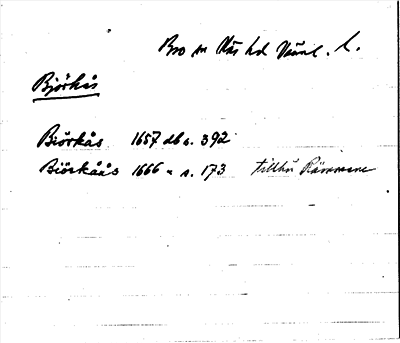 Bro sn Näs hd Värml. l.
Björkås
Biörkås 1657 db s. 392
Biörkåås 1666 " s. 173 tillhö Rämmene